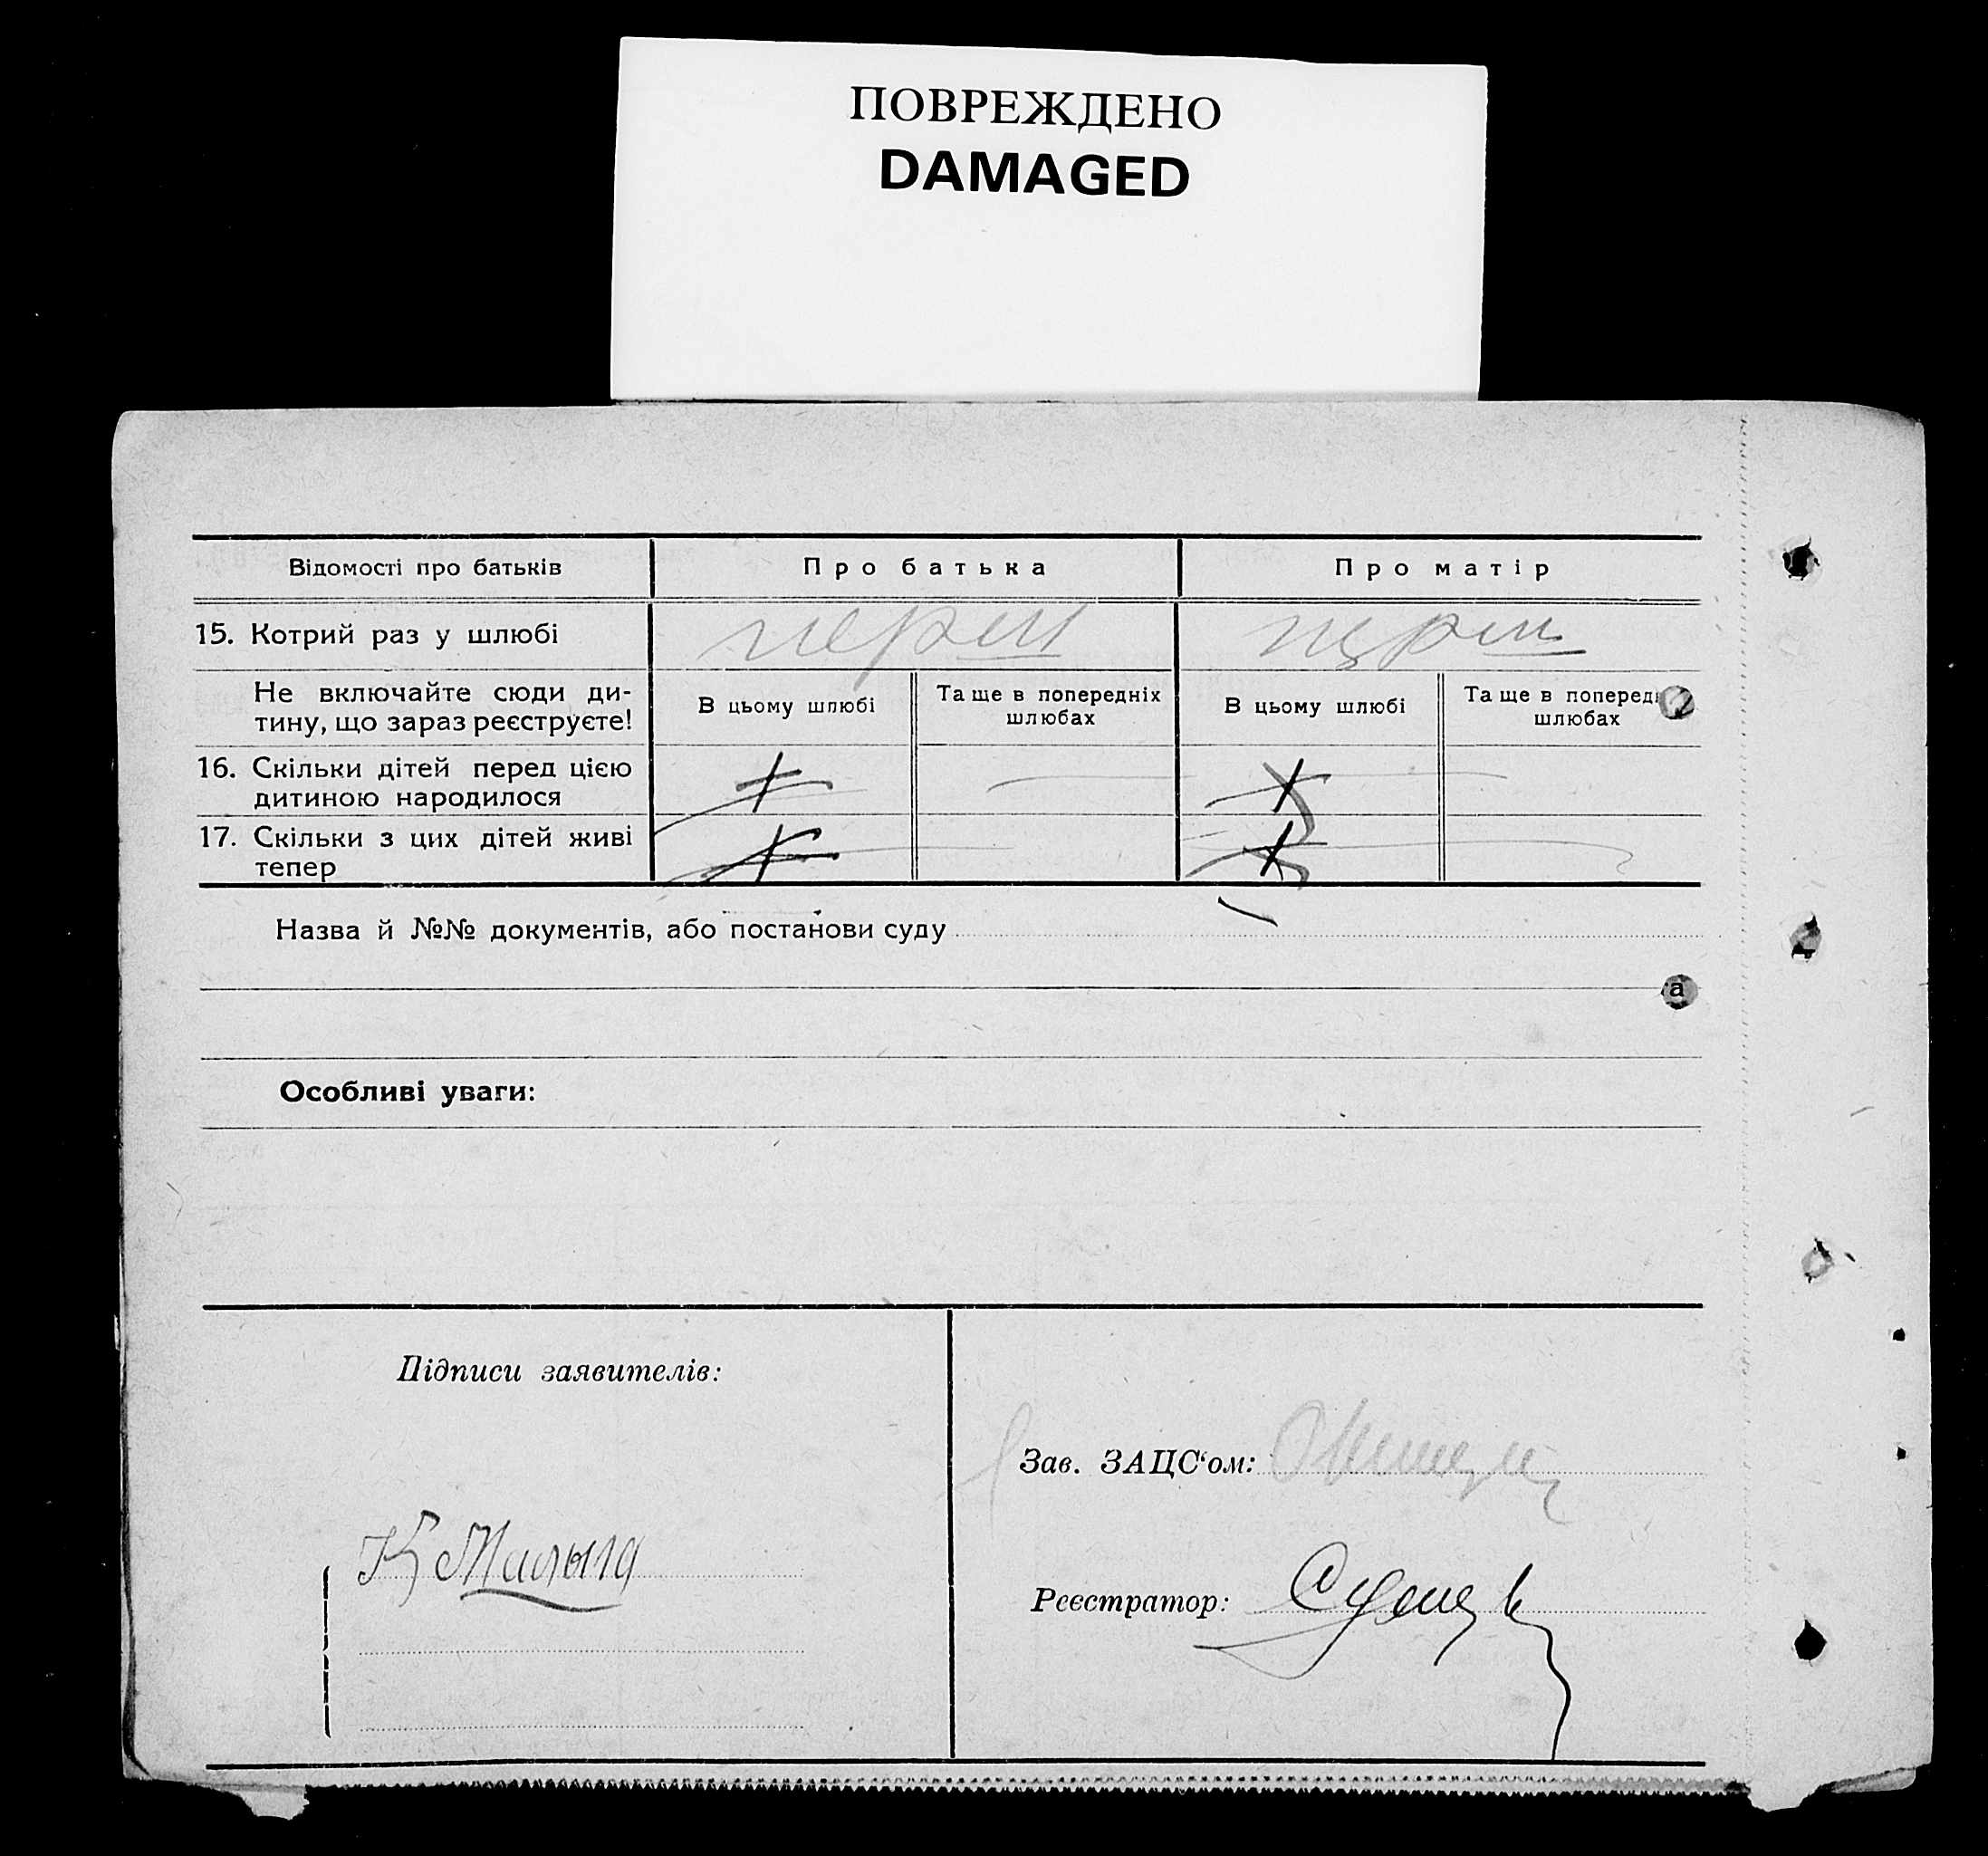 ПОВРЕЖДЕНО
DAMAGED
Відомості про батьків
Про батька
Про матір
15. Котрий раз у шлюбі
перш
перш
Не включайте сюди ди-
тину, що зараз реєструєте!
В цьому шлюбі
Та ще в попередніх
шлюбах
В цьому шлюбі
Та ще в поперед
шлюбах
16. Скільки дітей перед цією
дитиною народилося
17. Скільки з цих дітей живі
тепер
Назва й №№ документів, або постанови суду
Особливі уваги:
Підписи заявителів:
Зав. ЗАЦС‘ом:
К
Реєстратор: